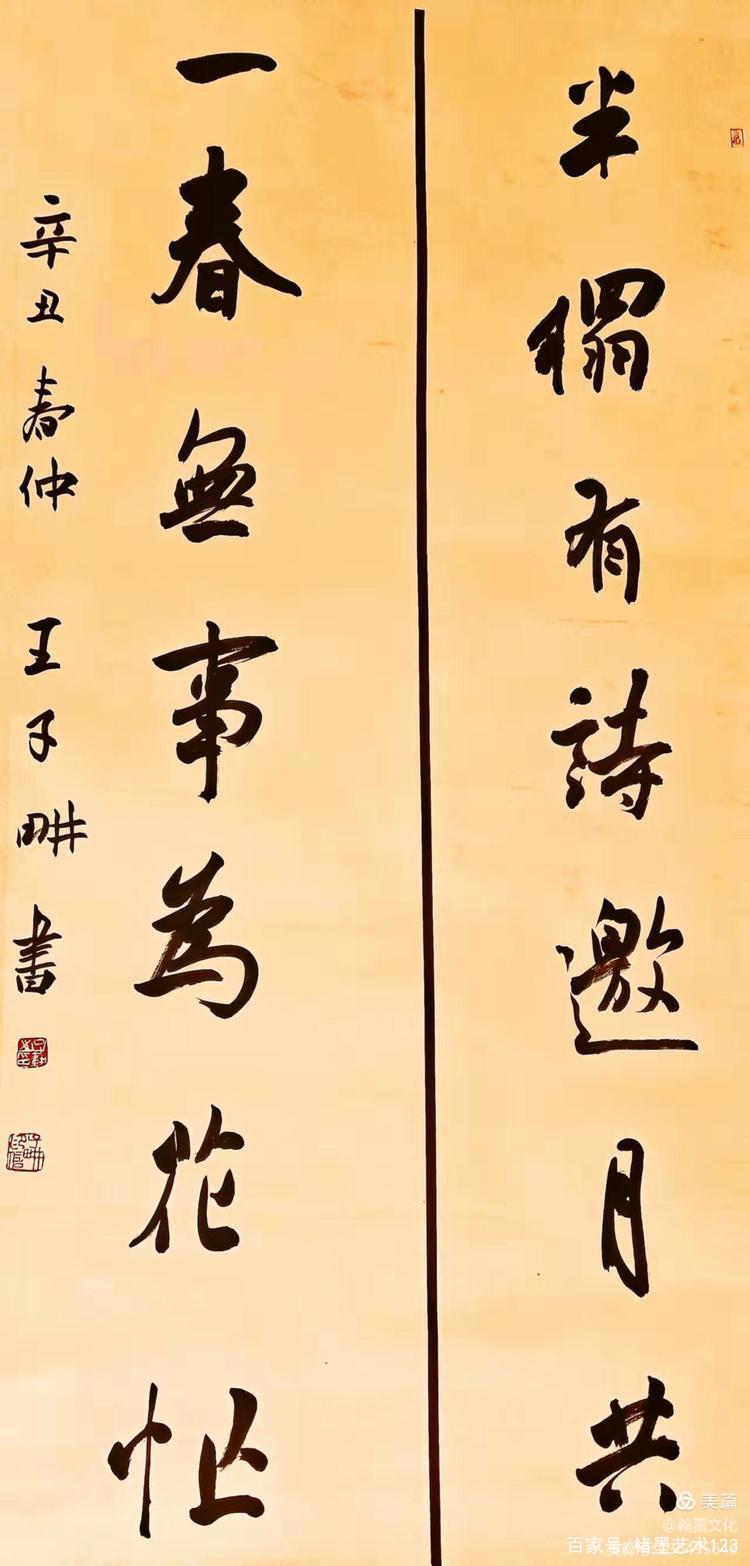 半榻有詩邀月共
一春無事為花忙
辛丑春仲 王子畊書
美篇
@翰墨文化
百家号/楮墨艺术123